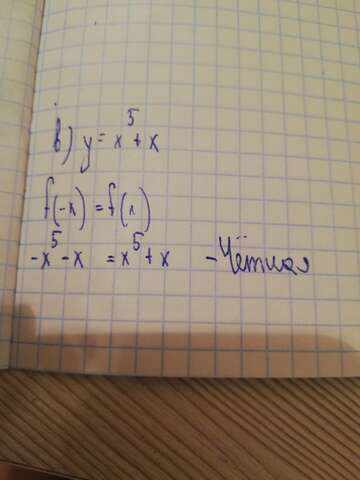 в) y = x⁵ + x
f(-x) = f(x)
-x⁵ - x = x⁵ + x - Чётная